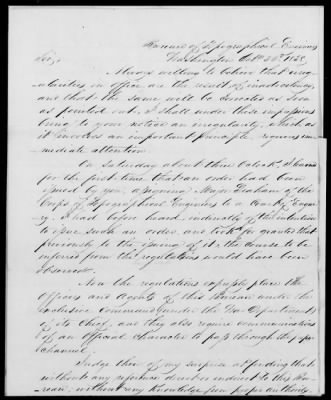 Bureau of Topographical Engineers
Washington Oct 30th 1838
Sir,
Always willing to believe that irreg-
ularities in office are the result of inadvertency,
and that the same will be corrected as soon
as pointed out, I shall under these impressions
bring to your notice an irregularity, which as
it involves an important principle requires im-
mediate attention.
On Saturday about three O'clock, I learned
for the first time that an order had been
issued by you, assigning Major Graham of the
Corps of Topographical Engineers to a Court of Enqui-
ry. I had before heard, incidentally of the intention
to issue such an order, and took for granted that
previously to the issuing of it, the course to be
inferred from the regulations would have been
observed.
Now the regulations expressly place the
Officers and Agents of this Bureau under the
exclusive Command under the War Department
of its Chief, and they also require communications
of an official character to pass through the same
channel.
Judge then of my surprise at finding that
without any reference direct or indirect to this Bu-
reau, without any knowledge from proper authority